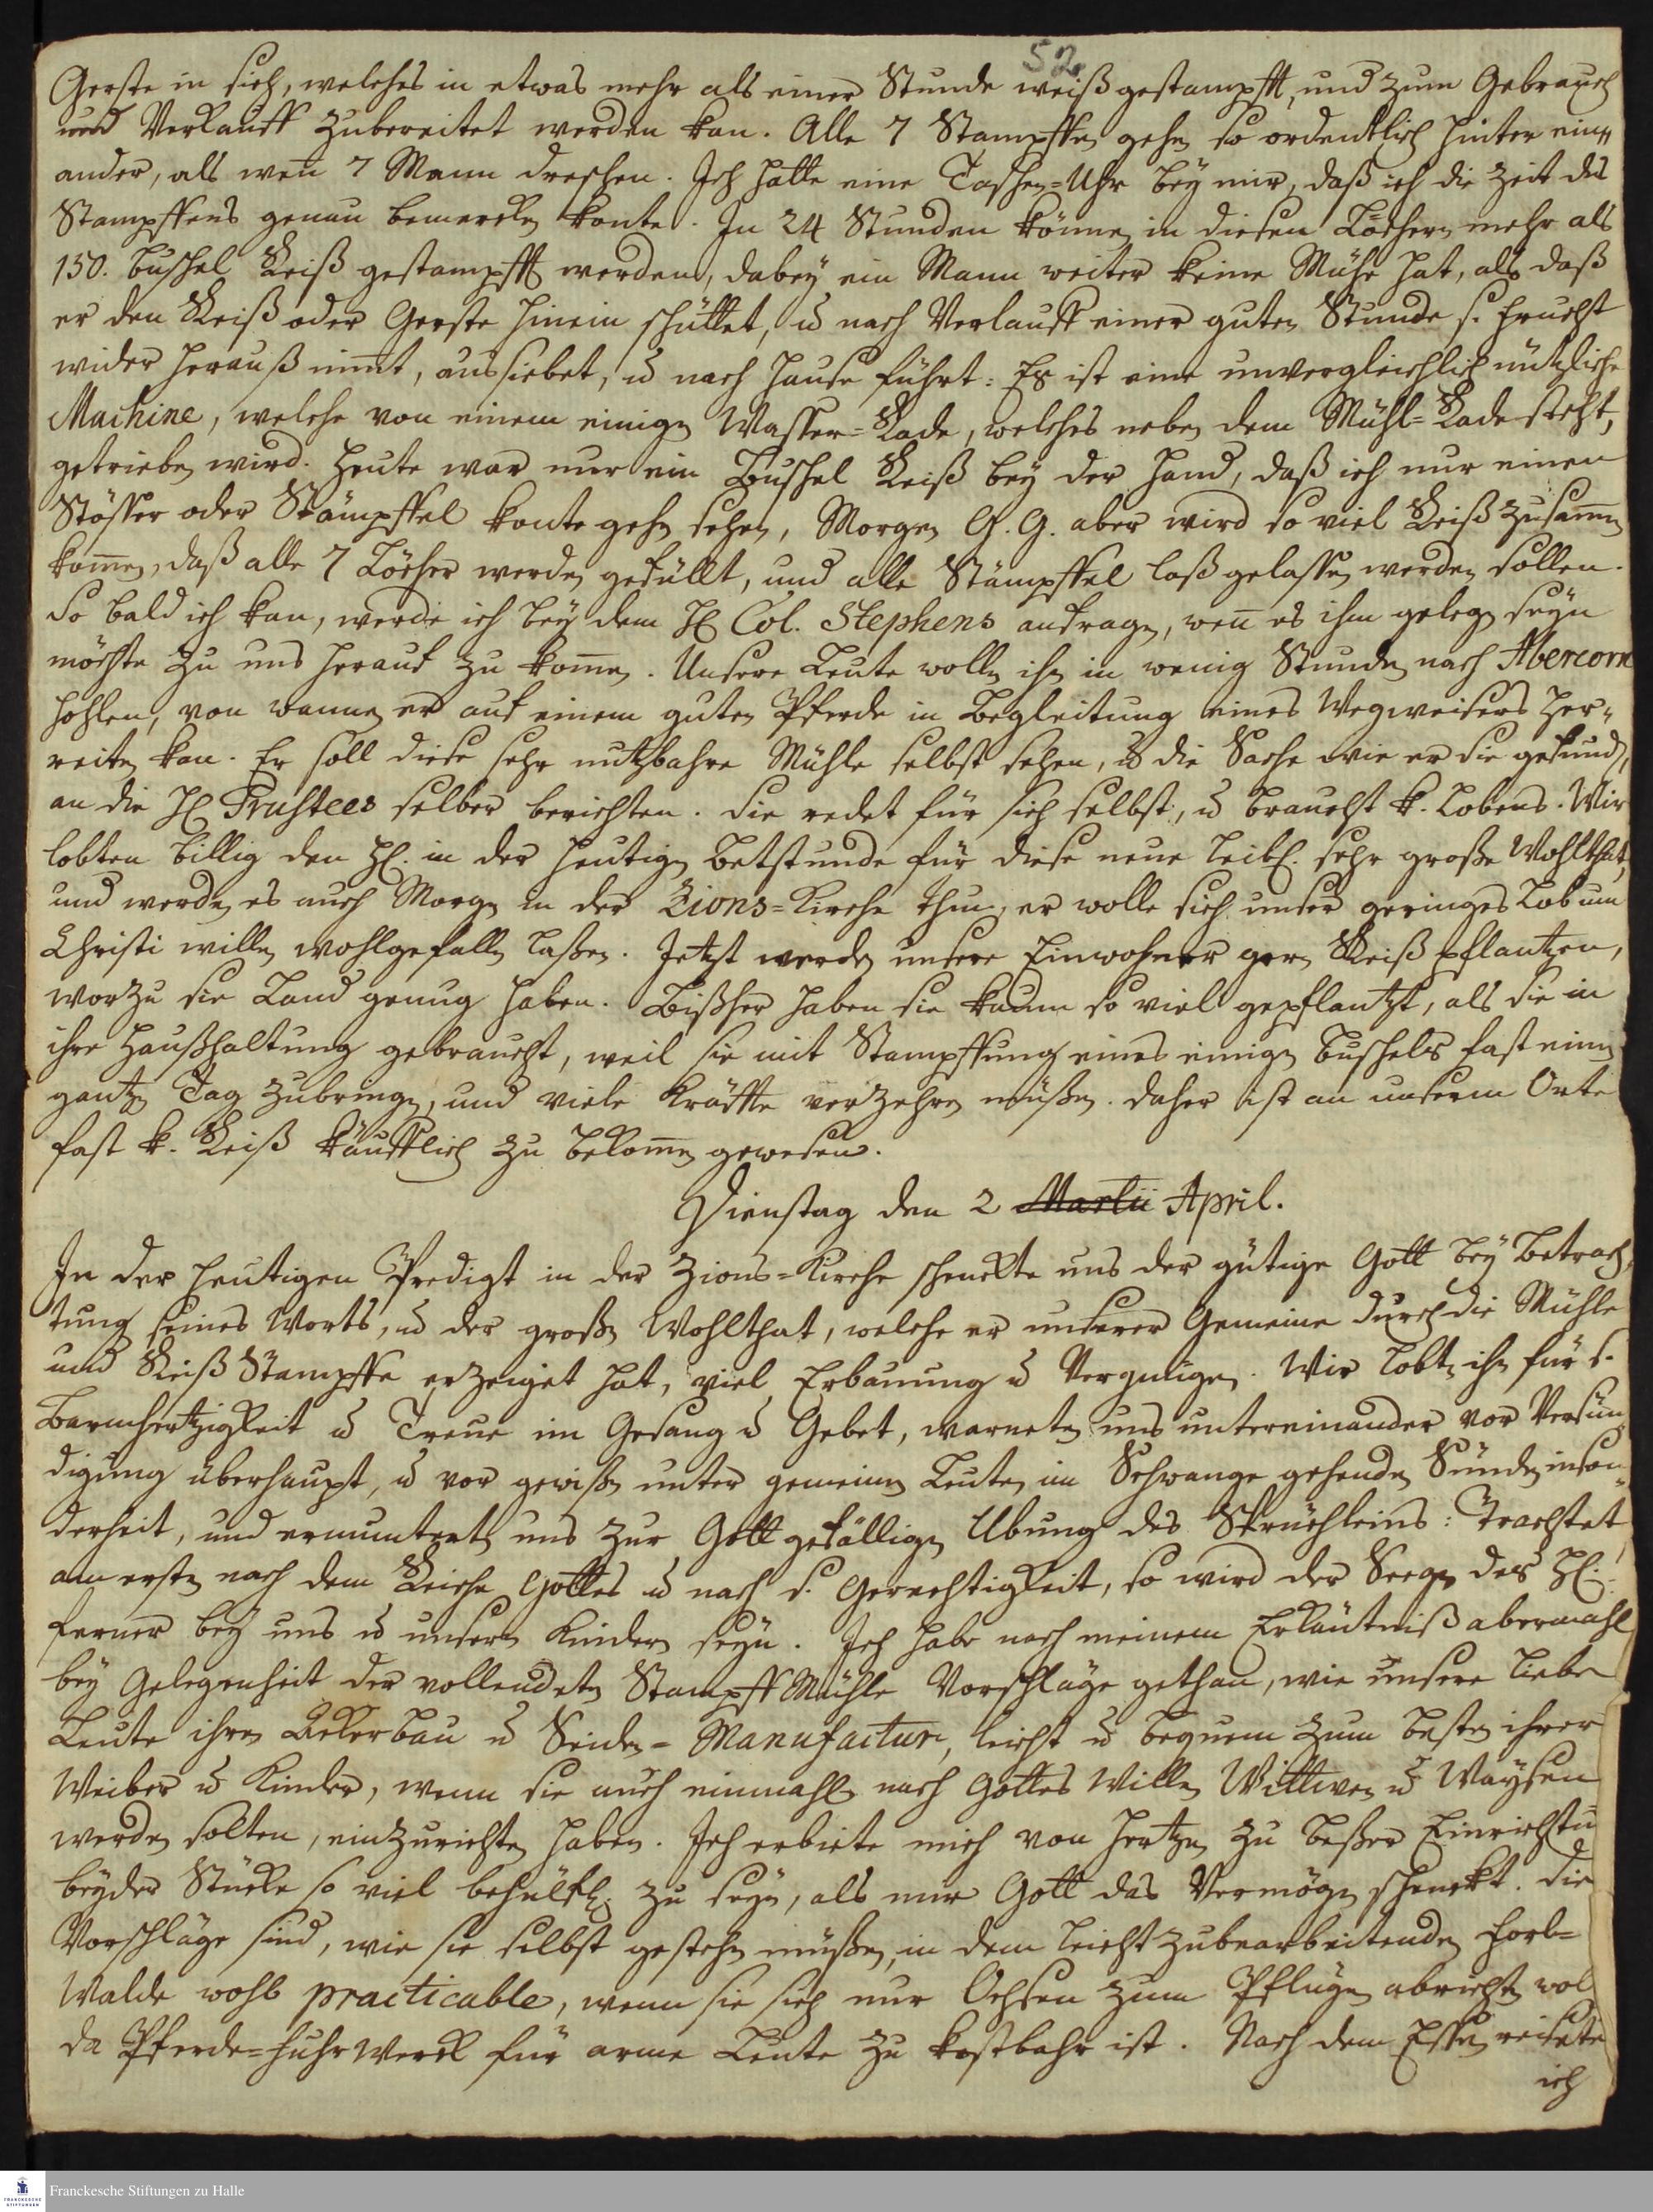 52
Gerste in sich, welches in etwas mehr als einer Stunde weiß gestampfft, und zum Gebrauch
und Verkauff zubereitet werden kan. Alle 7 Stampffen gehen so ordentlich hinter ein„
ander, als weñ 7 Mann dreschen. Ich hatte eine Taschen=Uhr bey mir, daß ich die Zeit des
Stampffens genau bemercken konte. In 24 Stunden können in diesen Löchern mehr als
150. buschel Reiß gestampfft werden, dabey ein Mann weiter keine Mühe hat, als daß
er den Reiß oder Gerste hinein schüttet, u nach Verlauff einer guten Stunde s. Frucht
wider herauß nim̃t, aussiebet, u nach Hause führt: Es ist eine unvergleichlich nützliche
Machine, welche von einem einigen Wasser=Rade, welches neben dem Mühl=Rade steht,
getrieben wird. Heute war nur ein Buschel Reiß bey der Hand, daß ich nur einen
Stösser oder Stämpffel konte gehen sehen, Morgen G. G. aber wird so viel Reiß zusam̃en
kom̃en, daß alle 7 Löcher werden gefüllt, und alle Stämpffel loß gelassen werden sollen.
So bald ich kan, werde ich bey dem H Col. Stephens anfragen, weñ es ihm gelegen seyn
möchte zu uns herauf zu kom̃en. Unsere Leute wollen ihn in wenig Stunden nach Abercorn
hohlen, von wannen er auf einem guten Pferde in Begleitung eines Wegweisers her„
reiten kan. Er soll diese sehr nutzbahre Mühle selbst sehen, u die Sache wie er sie gefunden,
an die H Trustees selber berichten. Sie redet für sich selbst, u braucht k. Lobens. Wir
lobten billig den H. in der heutigen Betstunde für diese neue leibl. sehr große Wohlthat,
und werden es auch Morgen in der Zions=Kirche thun, er wolle sich unser geringes Lob um
Christi willen wohlgefallen laßen. Jetzt werden unsere Einwohner gern Reiß pflantzen,
worzu sie Land genug haben. Bißher haben sie kaum so viel gepflantzt, als sie in
ihre Haußhaltung gebraucht, weil sie mit Stampffung eines einigen buschels fast einen
gantzen Tag zubringen, und viele Kräffte verzehren müßen. Daher ist an unserm Orte
fast k. Reiß käufflich zu bekom̃en gewesen.
Dienstag den 2 Martii April.
In der heutigen Predigt in der Zions=Kirche schenckte uns der gütige Gott bey Betrach„
tung seines Worts, u der großen Wohlthat, welche er unserer Gemeine durch die Mühle
und Reiß Stampffe erzeiget hat, viel Erbauung u Vergnügen. Wir lobten ihn für s.
Barmhertzigkeit u Treue im Gesang u Gebet, warneten uns untereinander vor Versün„
digung überhaupt, u vor gewißen unter gemeinen Leuten im Schwange gehenden Sünden inson„
derheit, und ermunterten uns zur Gott gefälligen Ubung des Sprüchleins: Trachtet
am ersten nach dem Reiche Gottes u nach s. Gerechtigkeit, so wird der Seegen des H.
ferner bey uns u unsern Kindern seyn. Ich habe nach meinem Erkäntniß abermahl
bey Gelegenheit der vollendeten Stampff Mühle Vorschläge gethan, wie unsere liebe
Leute ihren Ackerbau u Seiden=Manufactur, leicht u bequem zum besten ihrer
Weiber u Kinder, wenn sie auch einmahl nach Gottes Willen Wittwen u Waysen
werden solten, einzurichten haben. Ich erbiete mich von Hertzen zu beßer Einrichtu
beyder Stücke so viel behülfl. zu seyn, als mir Gott das Vermögen schenckt. Die
Vorschläge sind, wie sie selbst gestehen müßen, in dem leicht zubearbeitenden Forb=
Walde wohl practicable, wenn sie sich nur Ochsen zum Pflügen abrichten wol
da Pferde=Fuhrwerck für arme Leute zu kostbahr ist. Nach dem Essen reisete
ich
Franckesche Stiftungen zu Halle